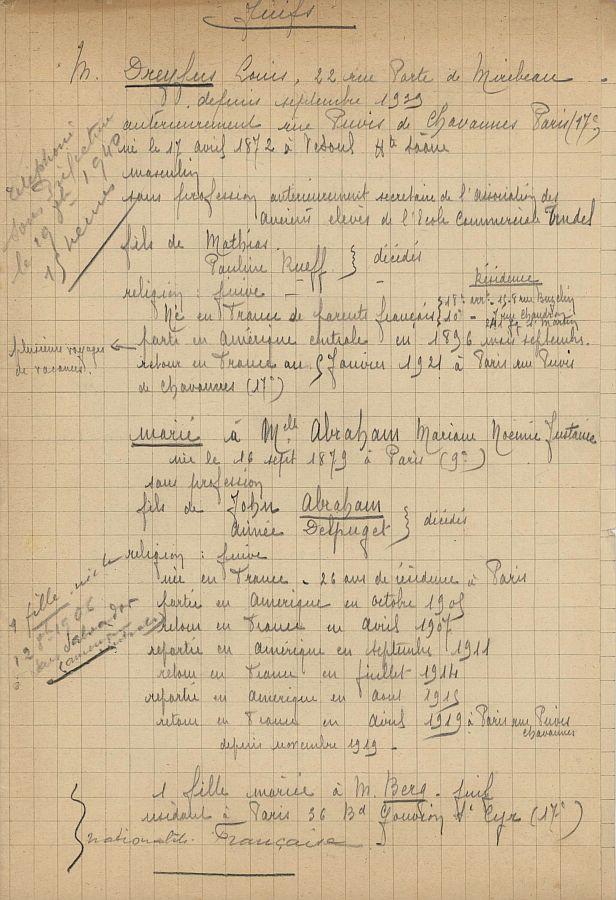 Juifs
M. Dreyfus Louis, 22 rue Porte de Mirebeau
depuis septembre 1939
antérieurement rue Puvis de Chavannes Paris (17e)
né le 17 avril 1872 à Vesoul Hte Saône
masculin
sans profession antérieurement secretaire de l'association des
anciens élèves de l'Ecole Commerciale Trudel
fils de Mathias
Pauline Rueff } décédés
religion : juive
Résidence
Né en France de parents français
18e arrt
10e
partit en Amérique centrale en 1896 mois septembre.
retour en France au 5 Janvier 1921 à Paris rue Puvis
de Chavannes (17e)
plusieurs voyages
de vacances.
téléphoné
Sous Préfecture
le 19 1940
15 heures
marié à Melle Abraham Mariane Noemie
née le 16 sept 1879 à Paris (9e)
sans profession
fils de John Abraham
Aimée Delpuget } décédés
religion : juive
née en France - 26 ans de résidence à Paris
partie en Amerique en octobre 1905
retour en France en avril 1907
repartie en amérique en septembre 1911
retour en France en juillet 1914
repartie en amerique en aout 1915
retour en France en avril 1919 à Paris rue Puvis
Chavannes
depuis novembre 1919 -
1 fille née le
1906
San Salvador
(amérique centrale)
1 fille mariée à M. Berg - juif
residant à Paris 36 Bd Gouvion St Cyr (17e)
nationalité Française